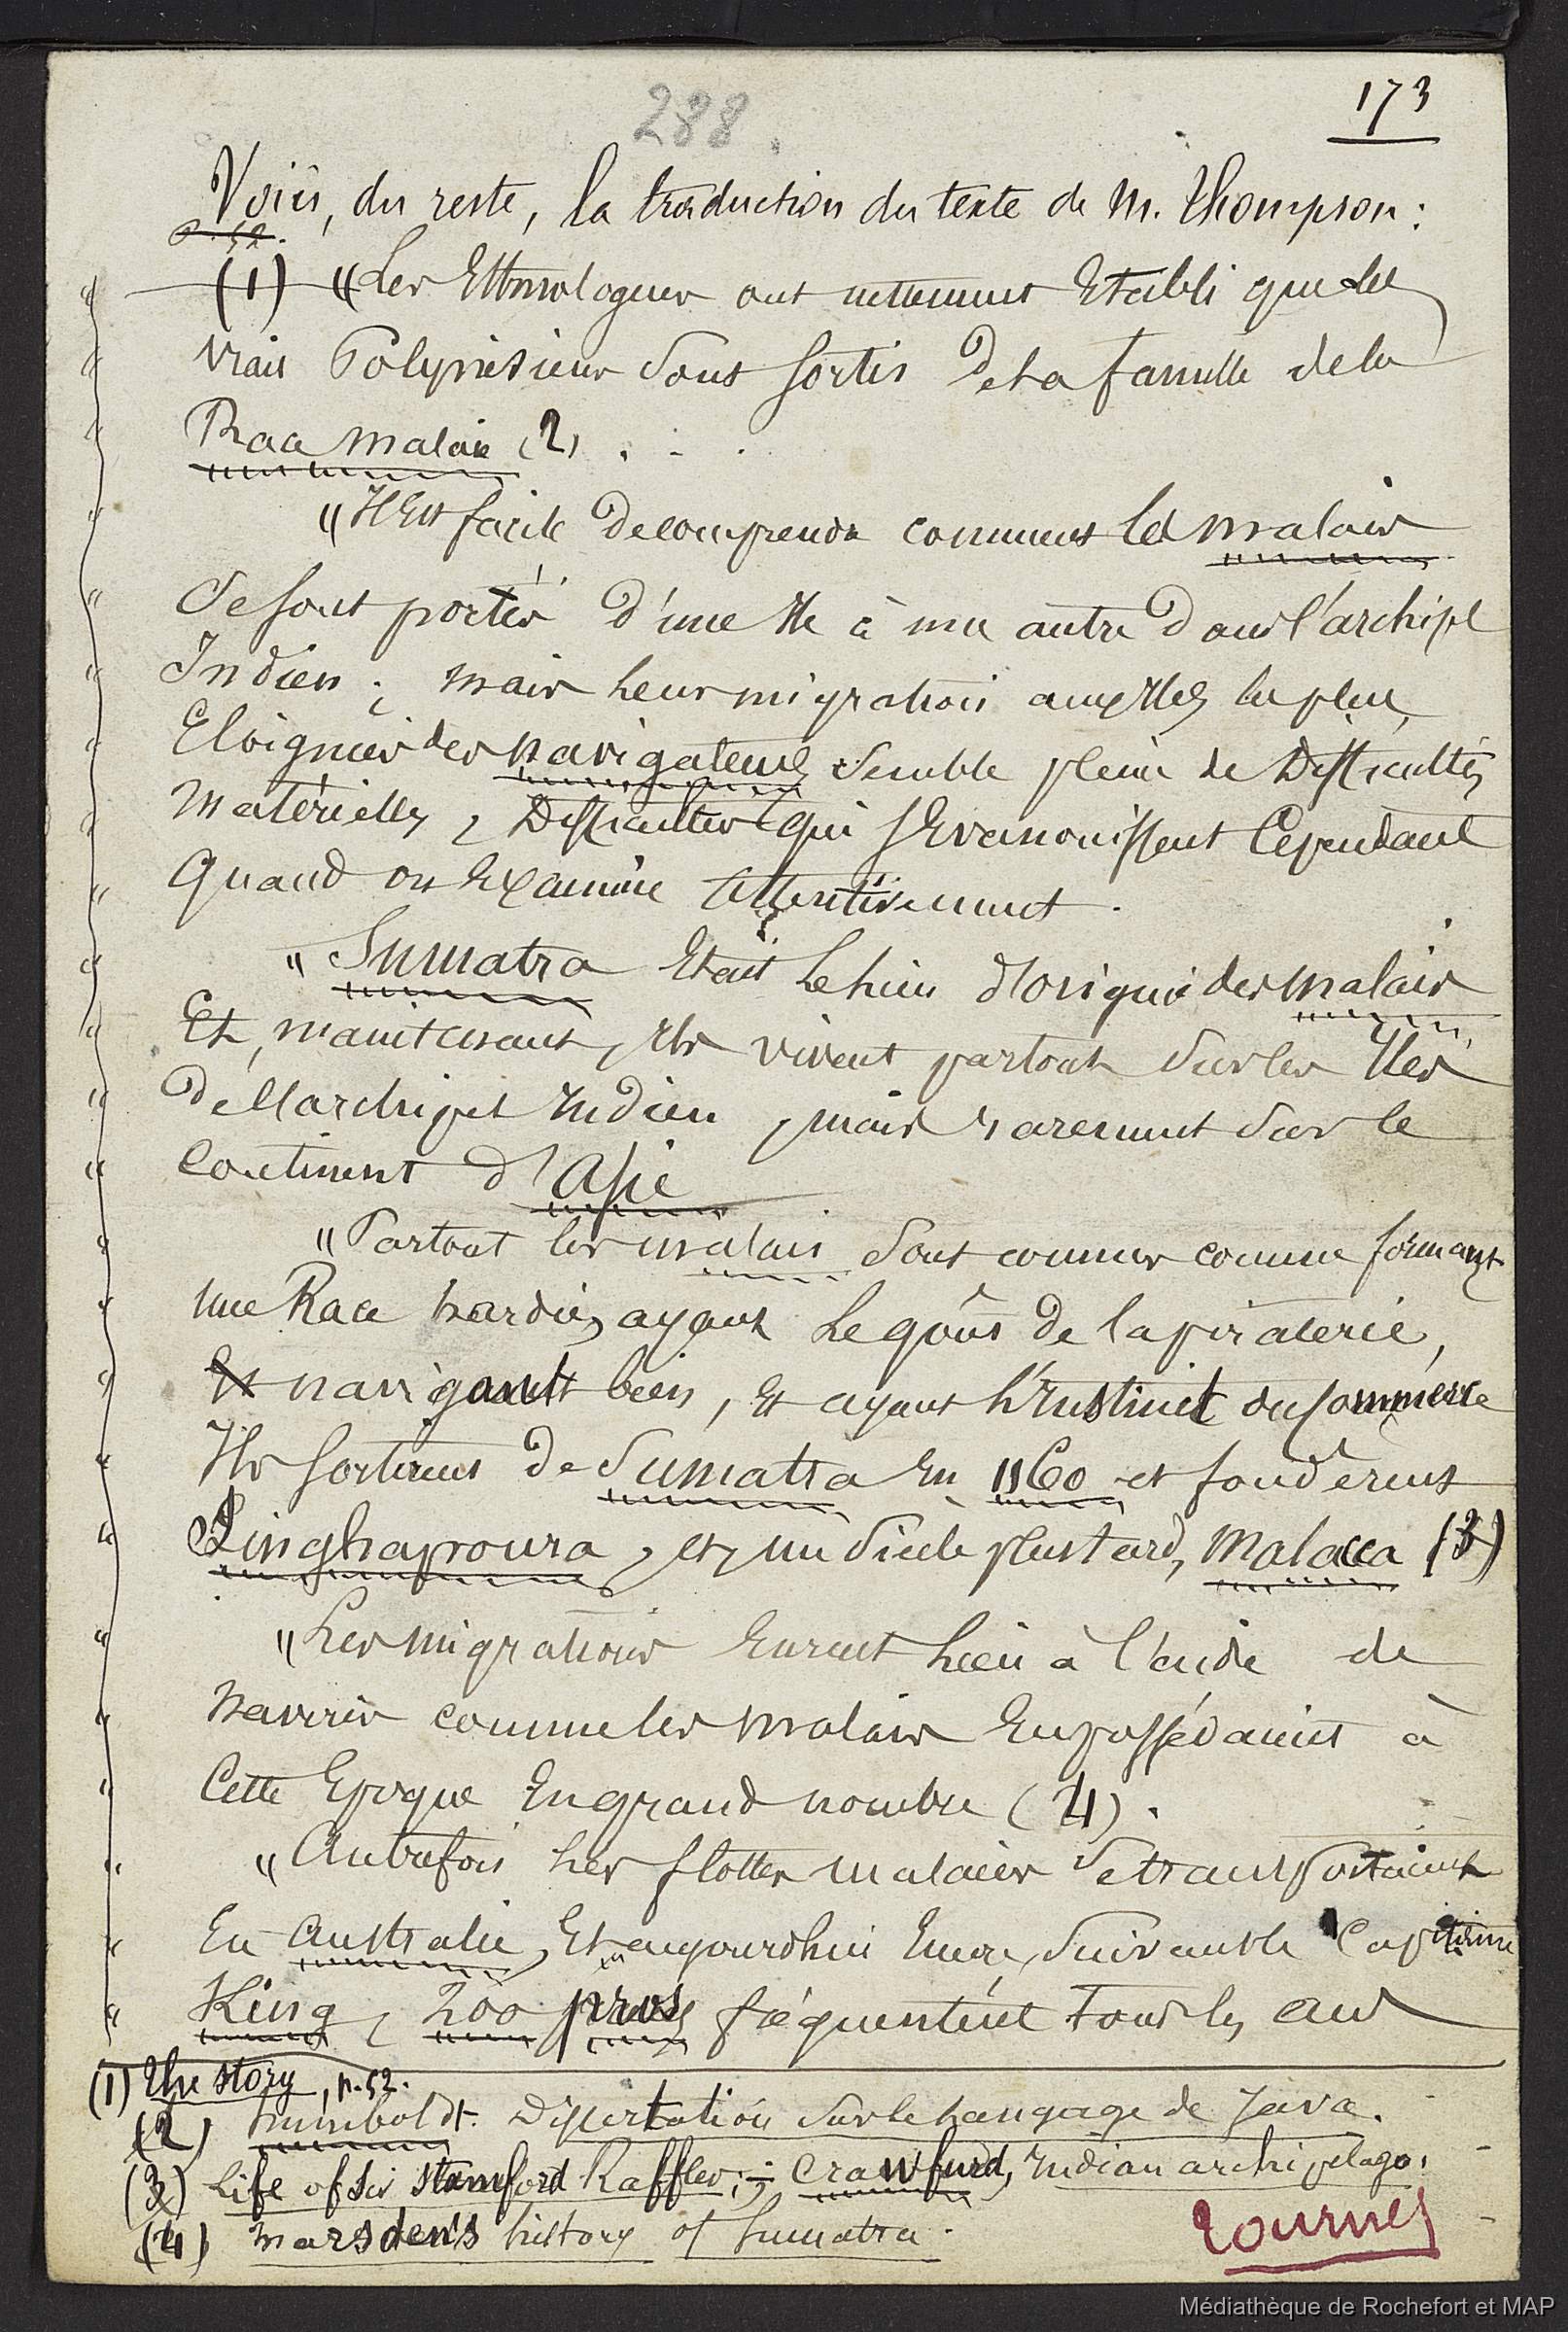 173
288.
Voici, du reste, la traduction du texte de M. Thompson:
p. 52.
(1) "Les Ethnologues ont nettement Etabli que les
vrais Polynésiens sont sortis de la famille de la
Race malaie (2) . . .
"Il Est facile de comprendre comment les malais
se sont portés d'une Ile à une autre dans l'archipel
Indien; mais leur migration aux Iles les plus
Eloignées des navigateurs semble pleine de Difficultés
matérielles, Difficultés qui s'Evanouissent Cependant
quand on Examine attentivement.
"Sumatra Etait le lieu d'origine des malais
Et, maintenant, Ils vivent partout sur les Iles
de l'archipel Indien, mais rarement sur le
continent d'Asie
"Partout les malais sont connus comme formant
une Race hardie, ayant le goût de la piraterie,
Et navigant bien, et ayant l'Instinct du commerce
Ils sortirent de Sumatra En 1160 et fondèrent
Singhapoura, et, un siècle plus tard, Malacca (3)
"Les migrations Eurent lieu à l'aide de
navires comme les malais En possédaient à
Cette Epoque En grand nombre (4).
"Autrefois les flottes malaies se transportaient
En Australie, Et aujourdhui Encore, suivant le Capitaine
King, 200 pros fréquentent tous les ans
(1) The story, p. 52.
(2) humboldt. Dissertation sur le langage de Java.
(3) Life of Sir Stamford Raffles; - Crawfurd, Indian archipelago.
(4) marsden's history of Sumatra.
tournez
Médiathèque de Rochefort et MAP